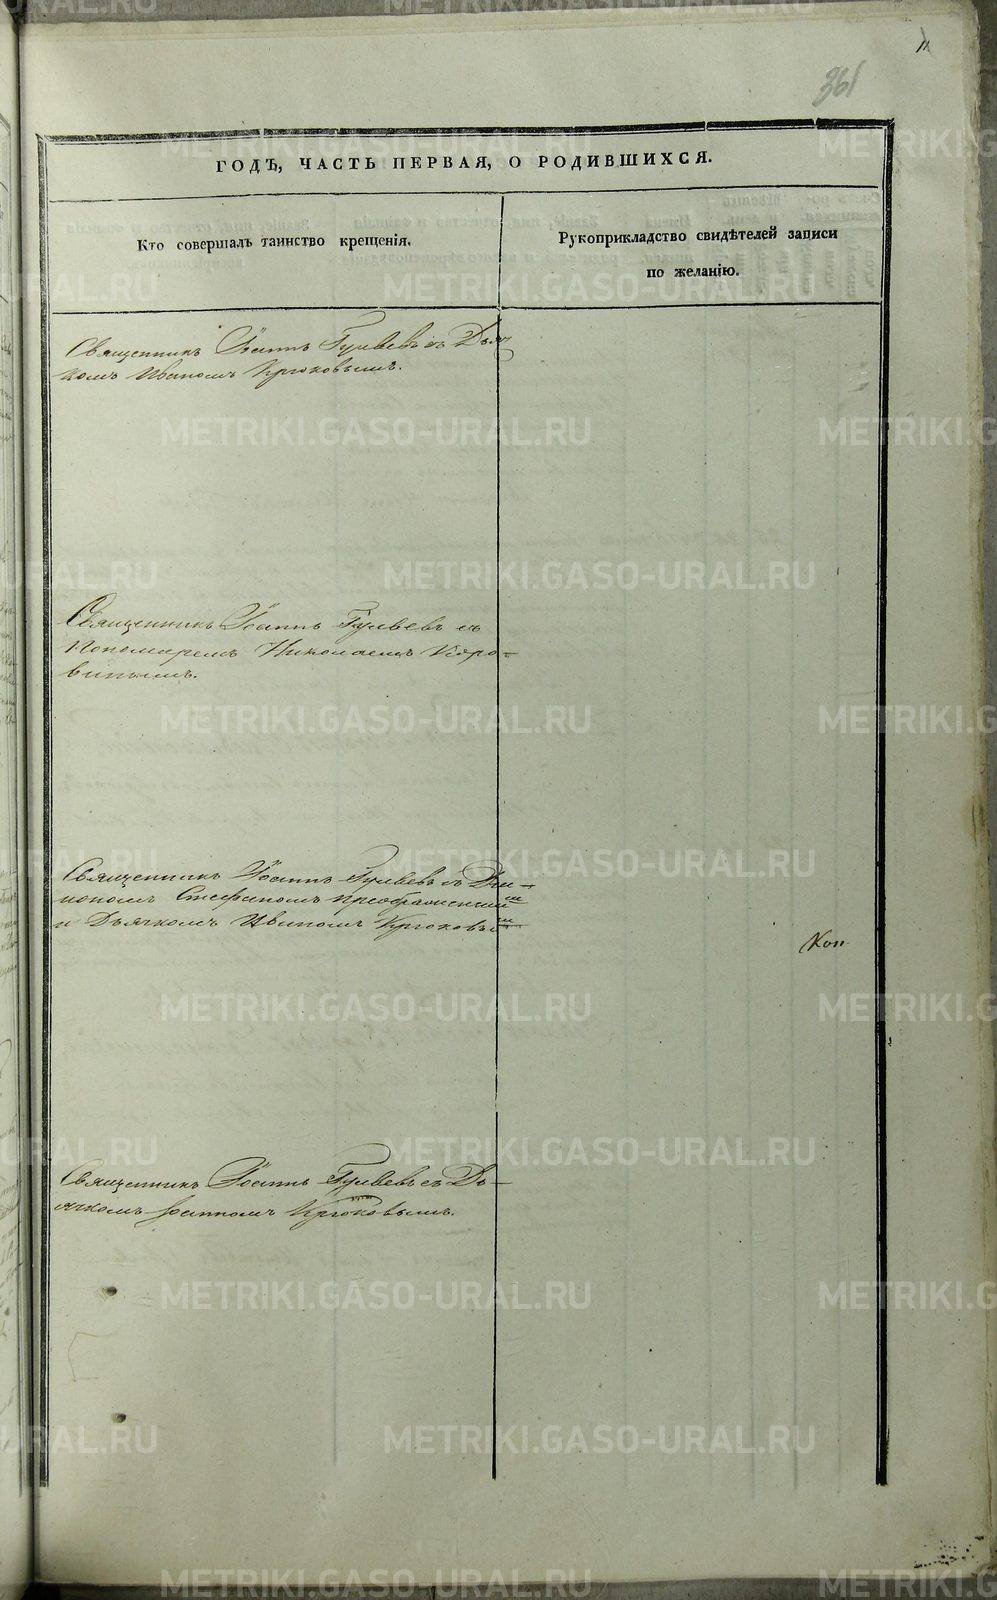 11
361
ГОДЪ, ЧАСТЬ ПЕРВАЯ, О РОДИВШИХСЯ.
Кто совершалъ таинство крещенія.
Рукоприкладство свидѣтелей записи
по желанію.
Священникъ Іоаннъ Гуляевъ съ Дьяч
комъ Иваномъ Крюковымъ.
Священникъ Іоаннъ Гуляевъ съ
Пономаремъ Николаемъ Удро-
винымъ.
Священникъ Іоаннъ Гуляевъ съ Діа-
кономъ Стефаномъ Преображенскимъ
и Дьячкомъ Иваномъ Крюковымъ
Коп
Священникъ Іоаннъ Гуляевъ съ Дь-
ячкомъ Іоанномъ Крюковымъ.
METRIKI.GASO-URAL.RU